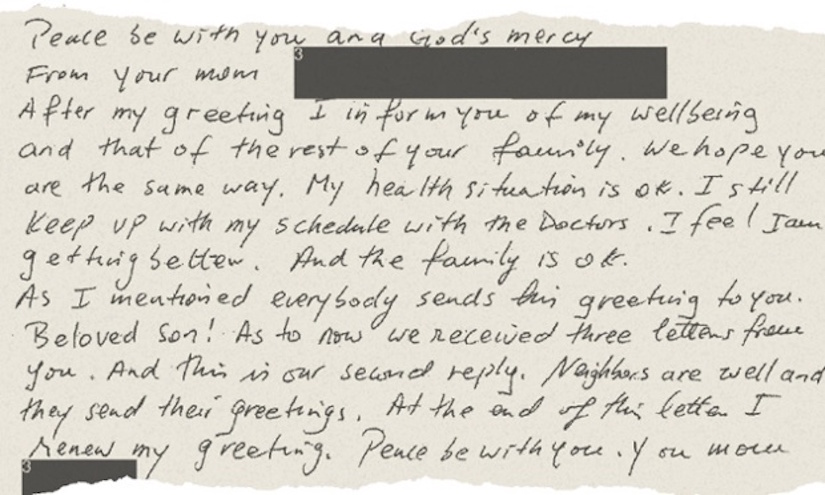 Peace be with you and God's mercy
3
From your mom
After my greeting I inform you of my wellbeing
and that of the rest of your family. We hope you
are the same way. My health situation is ok. I still
keep up with my schedule with the Doctors. I feel I am
getting better. And the family is ok.
As I mentioned everybody sends this greeting to you.
Beloved son! As to now we received three letters from
you. And this is our second reply. Neighbors are well and
they send their greetings. At the end of this letter I
renew my greeting. Peace be with you. You mom
3